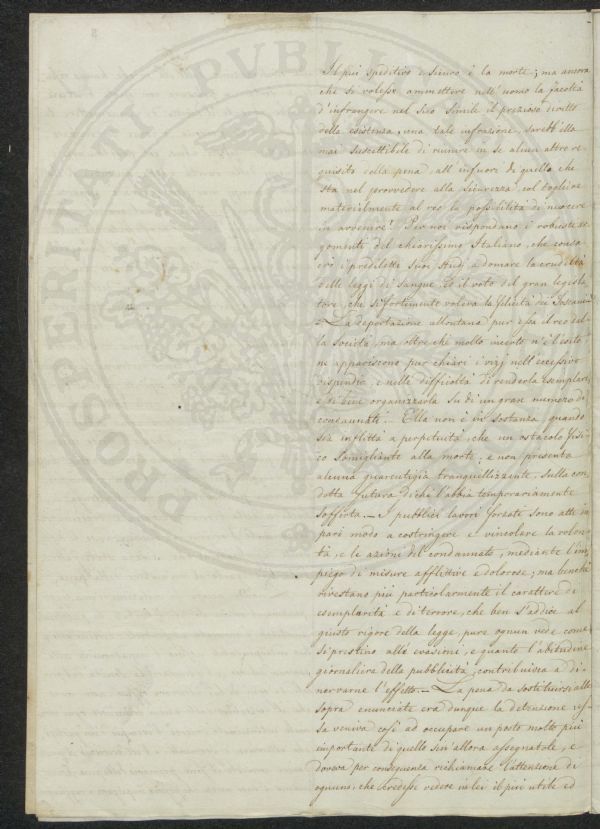 Il più speditivo e sicuro è la morte; ma ancora
che si volesse ammettere nell'uomo la facoltà
d'infrangere nel suo simile il prezioso diritto
della esistenza, una tale infrazione, sarebb'ella
mai suscettibile di riunire in se alcun altro re=
quisito della pena, all'infuori di quello che
sta nel provvedere alla sicurezza col togliere
materialmente al reo la possibilità di nuocere
in avvenire? Per noi rispondano i robusti ar
gomenti del chiarissimo Italiano, che consa
crò i prediletti suoi studj a domare la crudeltà
delle leggi di sangue, ed il voto del gran legisla
tore, che sì fortemente voleva la felicità dei Toscani
= La deportazione allontana pur essa il reo dal
la società, ma oltre che molto incerto n'è l'esito,
ne appariscono pur chiari i vizj nell'eccessivo
dispendio, e nella difficoltà di renderla esemplare,
e di bene organizzarla su di un gran numero di
condannati. Ella non è in sostanza quando
sia inflitta a perpetuità, che un ostacolo fisi
co somigliante alla morte, e non presenta
alcuna guarentigia tranquillizzante, sulla con
dotta futura di chi l'abbia temporariamente
sofferta. = I pubblici lavori forzati sono atti in
pari modo a costringere e vincolare la volon
tà, e le azioni del condannato, mediante l'im
piego di misure afflittive e dolorose; ma benchè
rivestano più particolarmente il carattere di
esemplarità e di terrore, che ben s'addice al
giusto rigore della legge, pure ognun vede come
si prestino alle evasioni, e quanto l'abitudine
giornaliera della pubblicità, contribuisca a di
nervarne l'effetto. = La pena da sostituirsi alle
sopra enunciate era dunque la detenzione es=
sa veniva così ad occupare un posto molto più
importante di quello sin'allora assegnatole, e
doveva per conseguenza richiamare l'attenzione di
ognuno, che credesse vedere in lei il più utile ed
PROSPERITATI PVBLIC